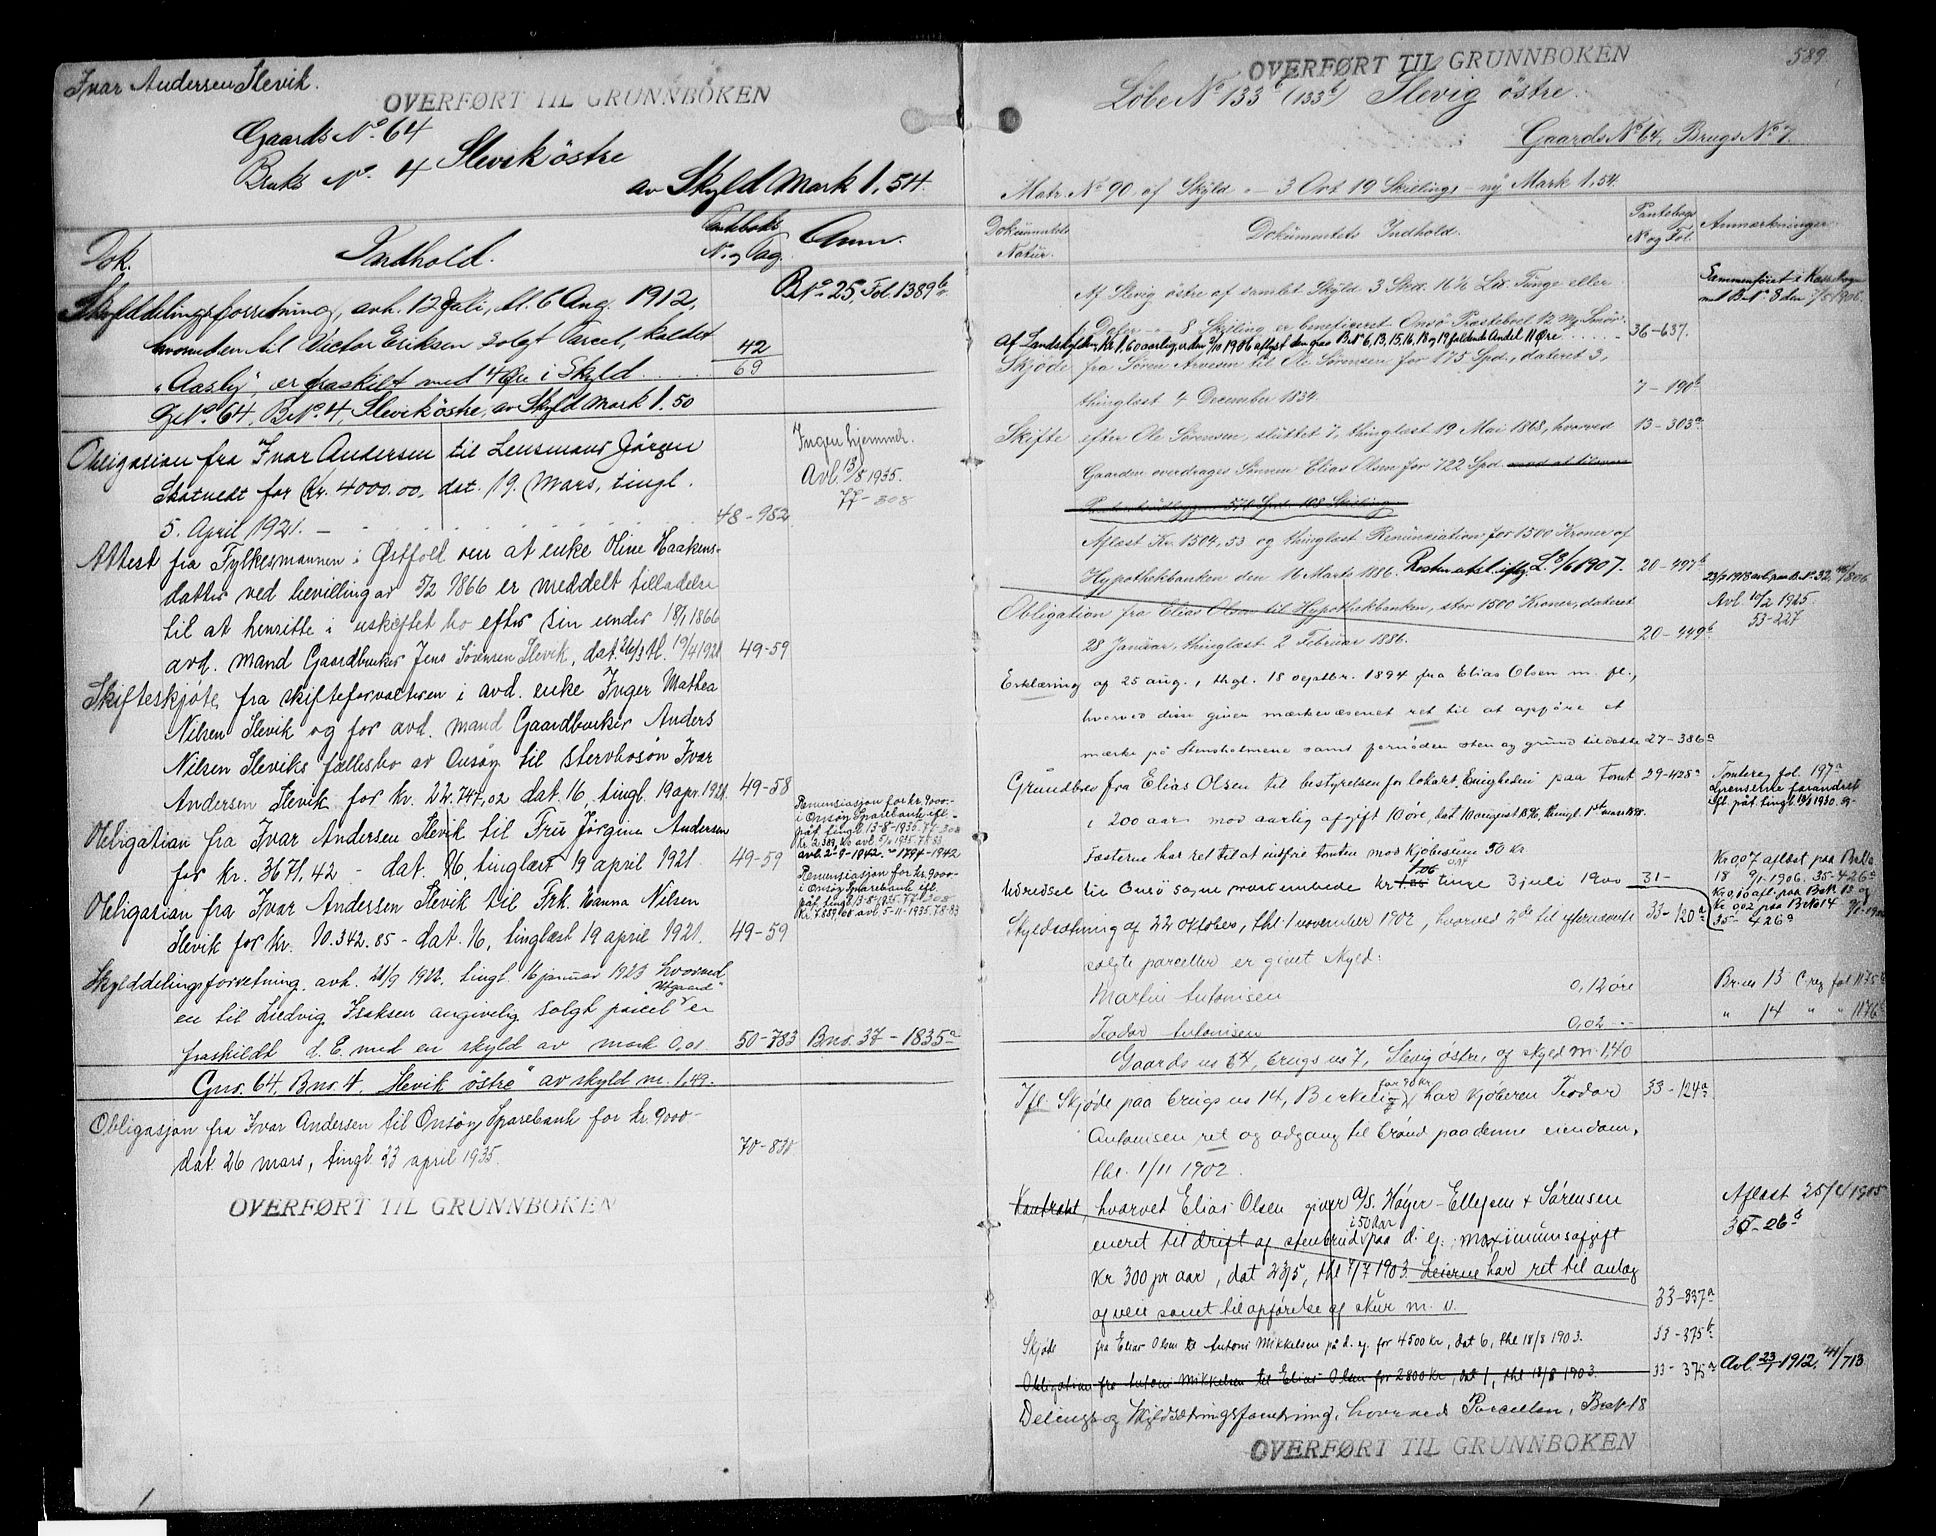 Ivar Andersen Slevik.
OVERFØRT TIL GRUNNBOKEN
Gaards No. 64
Bruks No. 4 Slevik östre
av Skyld Mark 1,54.
Dok.
Indhold.
Panteboks No. og Pag.
Anm.
Skylddelingsforretning, avh. 12 Juli, tl. 6 Aug. 1912,
hvorveden til Victor Eriksen solgt Parcel, kaldet
"Aasly" er fraskilt med 4 Øre i Skyld
42
69
B.No. 25, Fol. 1389b
G.No. 64, B.No. 4, Slevik östre, av Skyld Mark 1.50
Obligation fra Ivar Andersen til Lensmand Jörgen
Skatvedt for Kr. 4000.00, dat. 19. Mars, tingl.
5. April 1921. -
48-952
Ingen hjemmel.
Avl. 13/8 1935.
77-308
Attest fra Fylkesmannen i Østfold om at enke Oline Haakens-
datter ved bevilling av 5/2 1866 er meddelt tilladelse
til at hensitte i uskiftet bo efter sin under 18/1 1866
avd. mand Gaardbruker Jens Sørensen Slevik, dat. 26/3 tl. 19/4 1921
49-59
Skifteskjøte, fra skifteforvalteren i avd. enke Inger Mathea
Nilsen Slevik og for avd. mand Gaardbruker Anders
Nilsen Sleviks fællesbo av Onsöy til stervbosön Ivar
Andersen Slevik for kr. 22.747,02 dat. 16, tingl. 19 apr. 1921.
49-58
Obligation fra Ivar Andersen Slevik til Fru Jørgine Andersen
for kr. 3671.42 - dat. 16, tinglæst 19 april 1921.
49-59
Renunsiasjon for kr. 9000.-
i Onsöy Sparebank ifl.
påt. tingl. 13-8-1935. 77-308
avl. 2-9-1942. - 1794-1942
Obligation fra Ivar Andersen Slevik til Frk. Hanna Nilsen
Slevik for kr. 10.342.85 - dat. 16, tinglæst 19 april 1921.
49-59
Renunsiasjon for kr. 9000-
i Onsöy Sparebank ifl.
påt. tingl. 13-8-1935. 77-308
Kr. 7.859,08 avl. 5-11-1935. 78-93
Skylddelingsforretning, avh. 21/9 1922, tingl. 16 januar 1923 hvorved
en til Ludvig Isaksen angivelig solgt parcel "Utgaard" er
fraskildt d. E. med en skyld av mark 0,01
50-783
Bno. 37 - 1835a
Gno. 64, Bno. 4, "Slevik östre" av skyld m. 1,49.
Obligasjon fra Ivar Andersen til Onsöy Sparebank for kr. 9000-
dat. 26 mars, tingl. 23 april 1935.
70-830
OVERFØRT TIL GRUNNBOKEN
OVERFØRT TIL GRUNNBOKEN
589.
Löbe No. 133b (133b) Slevig östre.
Gaards No. 64, Brugs No. 7.
Matr. No. 90 af Skyld - 3 Ort 19 Skilling - ny Mark 1,54.
Dokumentets Natur.
Dokumentets Indhold.
Pantebogs No. og Fol.
Anmærkninger
Af Slevig östre af samlet Skyld 3 Skd. 16½ Lis. Tunge eller
Daler - 8 Skilling er beneficeret Onsö Præstebord 12 Mg Smör.
36-637.
Af Landskylden, Kr. 1.60 aarlig, er den 2/10 1906 afløst den paa B.No. 6, 13, 15, 16, 18 og 19 faldende Andel 11 Øre
Skjöde fra Sören Arvesen til Ole Sörensen for 175 Spd., dateret 3,
thinglæst 4 December 1834.
7-190b
Skifte efter Ole Sörensen, sluttet 7, thinglæst 19 Mai 1868, hvorved
13-303a
Gaarden overdrages Sønnen Elias Olsen for 722 Spd. med at tilsvare
Panteudlæggene 570 Spd. 108 Skilling
Aflæst Kr. 1504,53 og thinglæst Renunciation for 1500 Kroner af
Hypothekbanken den 16 Marts 1886.
20-497b
Obligation fra Elias Olsen til Hypothekbanken, stor 1500 Kroner, dateret
28 Januar, thinglæst 2 Februar 1886.
20-449b
Avl 10/2 1925.
53-227
Erklæring af 25 aug., thgl. 18 septbr. 1894 fra Elias Olsen m. fl.,
hvorved disse giver mærkevæsenet ret til at opføre et
mærke på Stensholmene samt fornøden sten og grund til dette
27-386a
Grundbrev fra Elias Olsen til bestyrelsen for lokalet Enigheden paa Tomt
29-428a
i 200 aar mod aarlig afgift 10 öre, dat 10 august 1896, thingl. 1ste mars 1898.
Fæsteren har ret til at indfri tomten mod kjøbesum 50 kr.
Tomtereg. fol. 197a
Grænserne forandret
Udredsel til Onsö sogneprestembede kr 1.06 tinge 3 juli 1900
31-
Kr 0,07 afløst paa Br.No
18 9/1-1906. 35-426a
Skyldsetning af 22 oktober, thl. 1 november 1902, hvorved 2de til efternævnte
33-120a
35-426a
solgte parceller er givet skyld:
Martin Antonisen 0,12 öre
Br. no 13 C reg fol 1175b
Teodor Antonisen 0,02 --
" 14 " " 1176b
Gaards no 64, brugs no 7, Slevig östre, af skyld m. 1,40
Ifl. Skjøde paa brugs no 14, Birkelig, for 90 kr har kjøberen Teodor
33-124a
Antonisen ret og adgang til brønd paa denne eiendom,
thl. 1/11 1902.
Kontrakt, hvorved Elias Olsen giver A/S. Høyer-Ellefsen & Sørensen
eneret til drift af stenbrud i 50 aar paa d. ej. maximumsafgift
Kr 300 pr aar, dat 23/5, thl 7/7 1903. Leierne har ret til anlæg
af veie samt til opförelse af skur m. v.
33-337a
Aflæst 25/4 1905
Skjøde fra Elias Olsen til Antoni Mikkelsen på d. ej. for 4500 kr, dat 6, thl 18/8 1903.
33-375b
Obligation fra Antoni Mikkelsen til Elias Olsen for 2800 kr, dat 1, thl 18/8 1903.
33-375a
Avl. 23/1 1912, 41/713
Delings- og Skyldsætningsforretning, hvorved Parcellen, Br.No. 18
OVERFØRT TIL GRUNNBOKEN